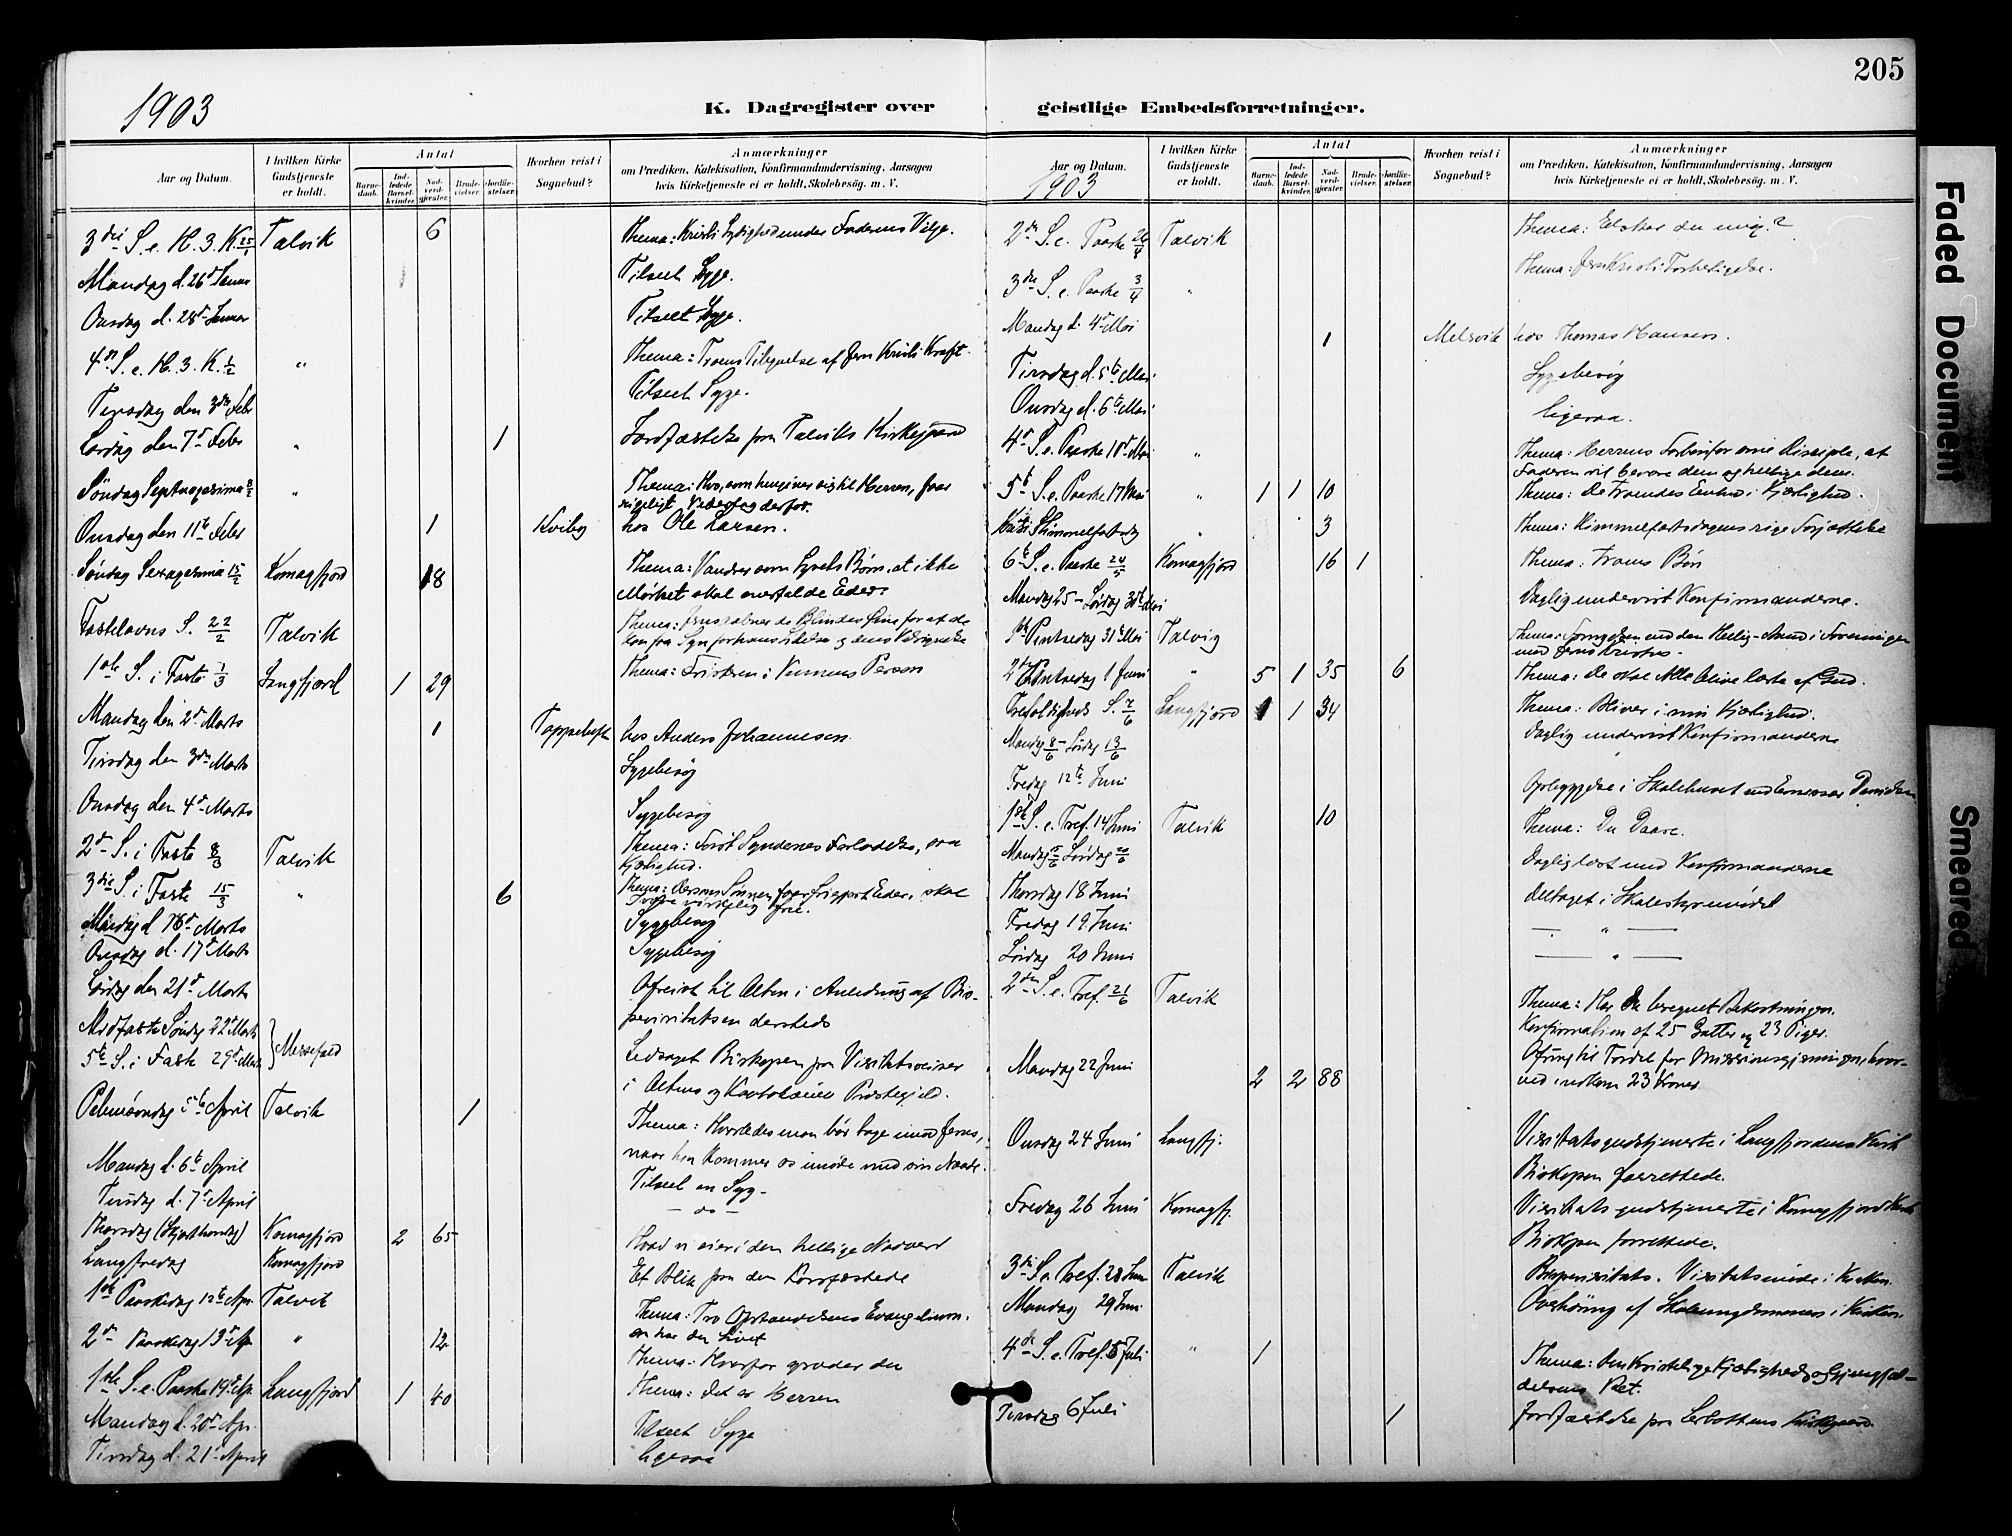 205
1903
K. Dagregister over geistlige Embedsforretninger.
Aar og Datum.
I hvilken Kirke Gudstjeneste er holdt.
Antal
Barnedaab.
Indledede Barselkvinder.
Nadverdgjester.
Brudevielser.
Jordfæstelser.
Hvorhen reist i Sognebud?
Anmærkninger
om Prædiken, Katekisation, Konfirmandundervisning, Aarsagen
hvis Kirketjeneste ei er holdt, Skolebesøg. m. V.
3die S. e. H. 3. K. 25/1 Talvik 6 Thema: Kristi Lydighed under Faderens Vilje.
Mandag d. 26d Januar Tilseet Syge.
Onsdag d. 28d Januar Tilseet Syge.
4d S. e. H. 3. K. 1/2 " Thema: Troens Tilegnelse af Jesu Kristi Kraft.
Tirsdag den 3die Febr Tilseet Syge.
Lørdag den 7d Febr " 1 Jordfæstelse paa Talviks Kirkegaard
Søndag Septuagesima 8/2 " Thema: Hvo, som hengiver sig til Herren, faar
rigeligt Vederlag derfor.
Onsdag den 11te Febr 1 Kviby hos Ole Larsen.
Søndag Sexagesima 15/2 Komagfjord 18 Thema: Vandrer som Lysets Børn, at ikke
Mørket skal overfalde Eder.
Fastelavns S. 22/2 Talvik Thema: Jesus aabner de Blindes Øine for at de
kan faa Syn for hans Lidelse og dens Velsignelse
1ste S. i Faste 1/3 Langfjord 1 29 Thema: Fristeren i Vennens Person
Mandag den 2d Marts 1 Toppeluft hos Anders Johannesen
Tirsdag den 3die Marts Sygebesøg
Onsdag den 4d Marts Sygebesøg
2d S. i Faste 8/3 Talvik Thema: Først Syndernes Forladelse, saa
Kjærlighed.
3die S. i Faste 15/3 " 6 Thema: Dersom Sønnen faar frigjort Eder, skal
I være virkelig frie.
Mandag d. 16d Marts Sygebesøg
Onsdag d. 17d Marts Sygebesøg
Lørdag den 21d Marts Afreist til Alten i Anledning af Bis-
pevisitatsen dersteds
Midfaste Søndag 22d Marts } Messefald
5te S. i Faste 29d Marts Ledsaget Biskopen paa Visitatsreiser
i Altens og Kautokeino Præstegjeld.
Palmesøndag 5te April Talvik 1 Thema: Hvorledes man bør tage imod Jesus,
naar han kommer os imøde med sin Naade.
Mandag d. 6te April Tilseet en Syg.
Tirsdag d. 7d April — do —
Thorsdag (Skjærthorsdag) Komagfjord 2 65 Hvad vi eier i den hellige Nadverd
Langfredag Komagfjord Et Blik paa den Korsfæstede
1ste Paaskedag 12te Apr. Talvik Thema: Tro Opstandelsens Evangelium,
saa har du Livet
2d Paaskedag 13d Apr " 12 Thema: Hvorfor græder du
1ste S. e. Paaske 19d Apr Langfjord 1 40 Thema: Det er Herren
Mandag d. 20d Apr. Tilseet Syge
Tirsdag d. 21d April ligesaa
Aar og Datum.
1903
I hvilken Kirke Gudstjeneste er holdt.
Antal
Barnedaab.
Indledede Barselkvinder.
Nadverdgjester.
Brudevielser.
Jordfæstelser.
Hvorhen reist i Sognebud?
Anmærkninger
om Prædiken, Katekisation, Konfirmandundervisning, Aarsagen
hvis Kirketjeneste ei er holdt, Skolebesøg. m. V.
2den S. e. Paaske 26/4 Talvik Thema: Elsker du mig?
3die S. e. Paaske 3/4 " Thema: Jesu Kristi Forherligelse.
Mandag d. 4d Mai 1 Melsvik hos Thomas Hansen.
Tirsdag d. 5te Mai Sygebesøg
Onsdag d. 6te Mai ligesaa.
4d S. e. Paaske 10d Mai " Thema: Herrens Forbøn for sine Disciple, at
Faderen vil bevare dem og hellige dem.
5te S. e. Paaske 17d Mai " 1 1 10 Thema: De Troendes Enhed i Kjærlighed.
Kristi Himmelfartsdag " 3 Thema: Himmelfartsdagens rige Forjættelse
6te S. e. Paaske 24/5 Komagfjord 16 1 Thema: Troens Bøn
Mandag 25 – Lørdag 30te Mai Daglig undervist Konfirmanderne.
1ste Pintsedag 31te Mai Talvig Thema: Fornyelsen ved den Hellig-Aand i Foreningen
med Jesus Kristus.
2den Pintsedag 1 Juni " 5 1 35 6 Thema: De skal Alle blive lærte af Gud.
Trefoldigheds S. 7/6 Langfjord 1 1 34 Thema: Bliver i min Kjærlighed.
Mandag 8/6 – Lørdag 13/6 Daglig undervist Konfirmanderne
Fredag 12te Juni Opbyggelse i Skolehuset ved
1ste S. e. Tref. 14 Juni Talvik 10 Thema: Du Daare.
Mandag 15/6 Lørdag 20/6 Daglig læst med Konfirmanderne
Thorsdag 18 Juni deltaget i Skolestyremødet
Fredag 19 Juni — " —
Lørdag 20 Juni — " —
2den S. e. Tref. 21/6 Talvik Thema: Har Du beregnet Bekostningen.
Konfirmation af 25 Gutter og 23 Piger.
Ofring til Fordel for Missionsgjerningen, hvor-
ved indkom 23 Kroner
Mandag 22 Juni 2 2 88
Onsdag 24 Juni Langfj. Visitatsgudstjeneste i Langfjordens Kirke
Biskopen forrettede.
Fredag 26 Juni Komagfj. Visitatsgudstjeneste i Komagfjord Kirke
Biskopen forrettede.
3die S. e. Tref. 28 Juni Talvik Bispevisitats. Visitatsmøde i Kirken.
Mandag 29 Juni Overhøring af Skoleungdommen i Kirken.
4de S. e. Tref. 5 Juli " 1 Thema: Den Kristelige Kjærligheds og Gjengjæl-
delsens Ret.
Tirsdag 6 Juli 1 Jordfæstelse paa Lerbottens Kirkegaard.
Faded Document
Smeared